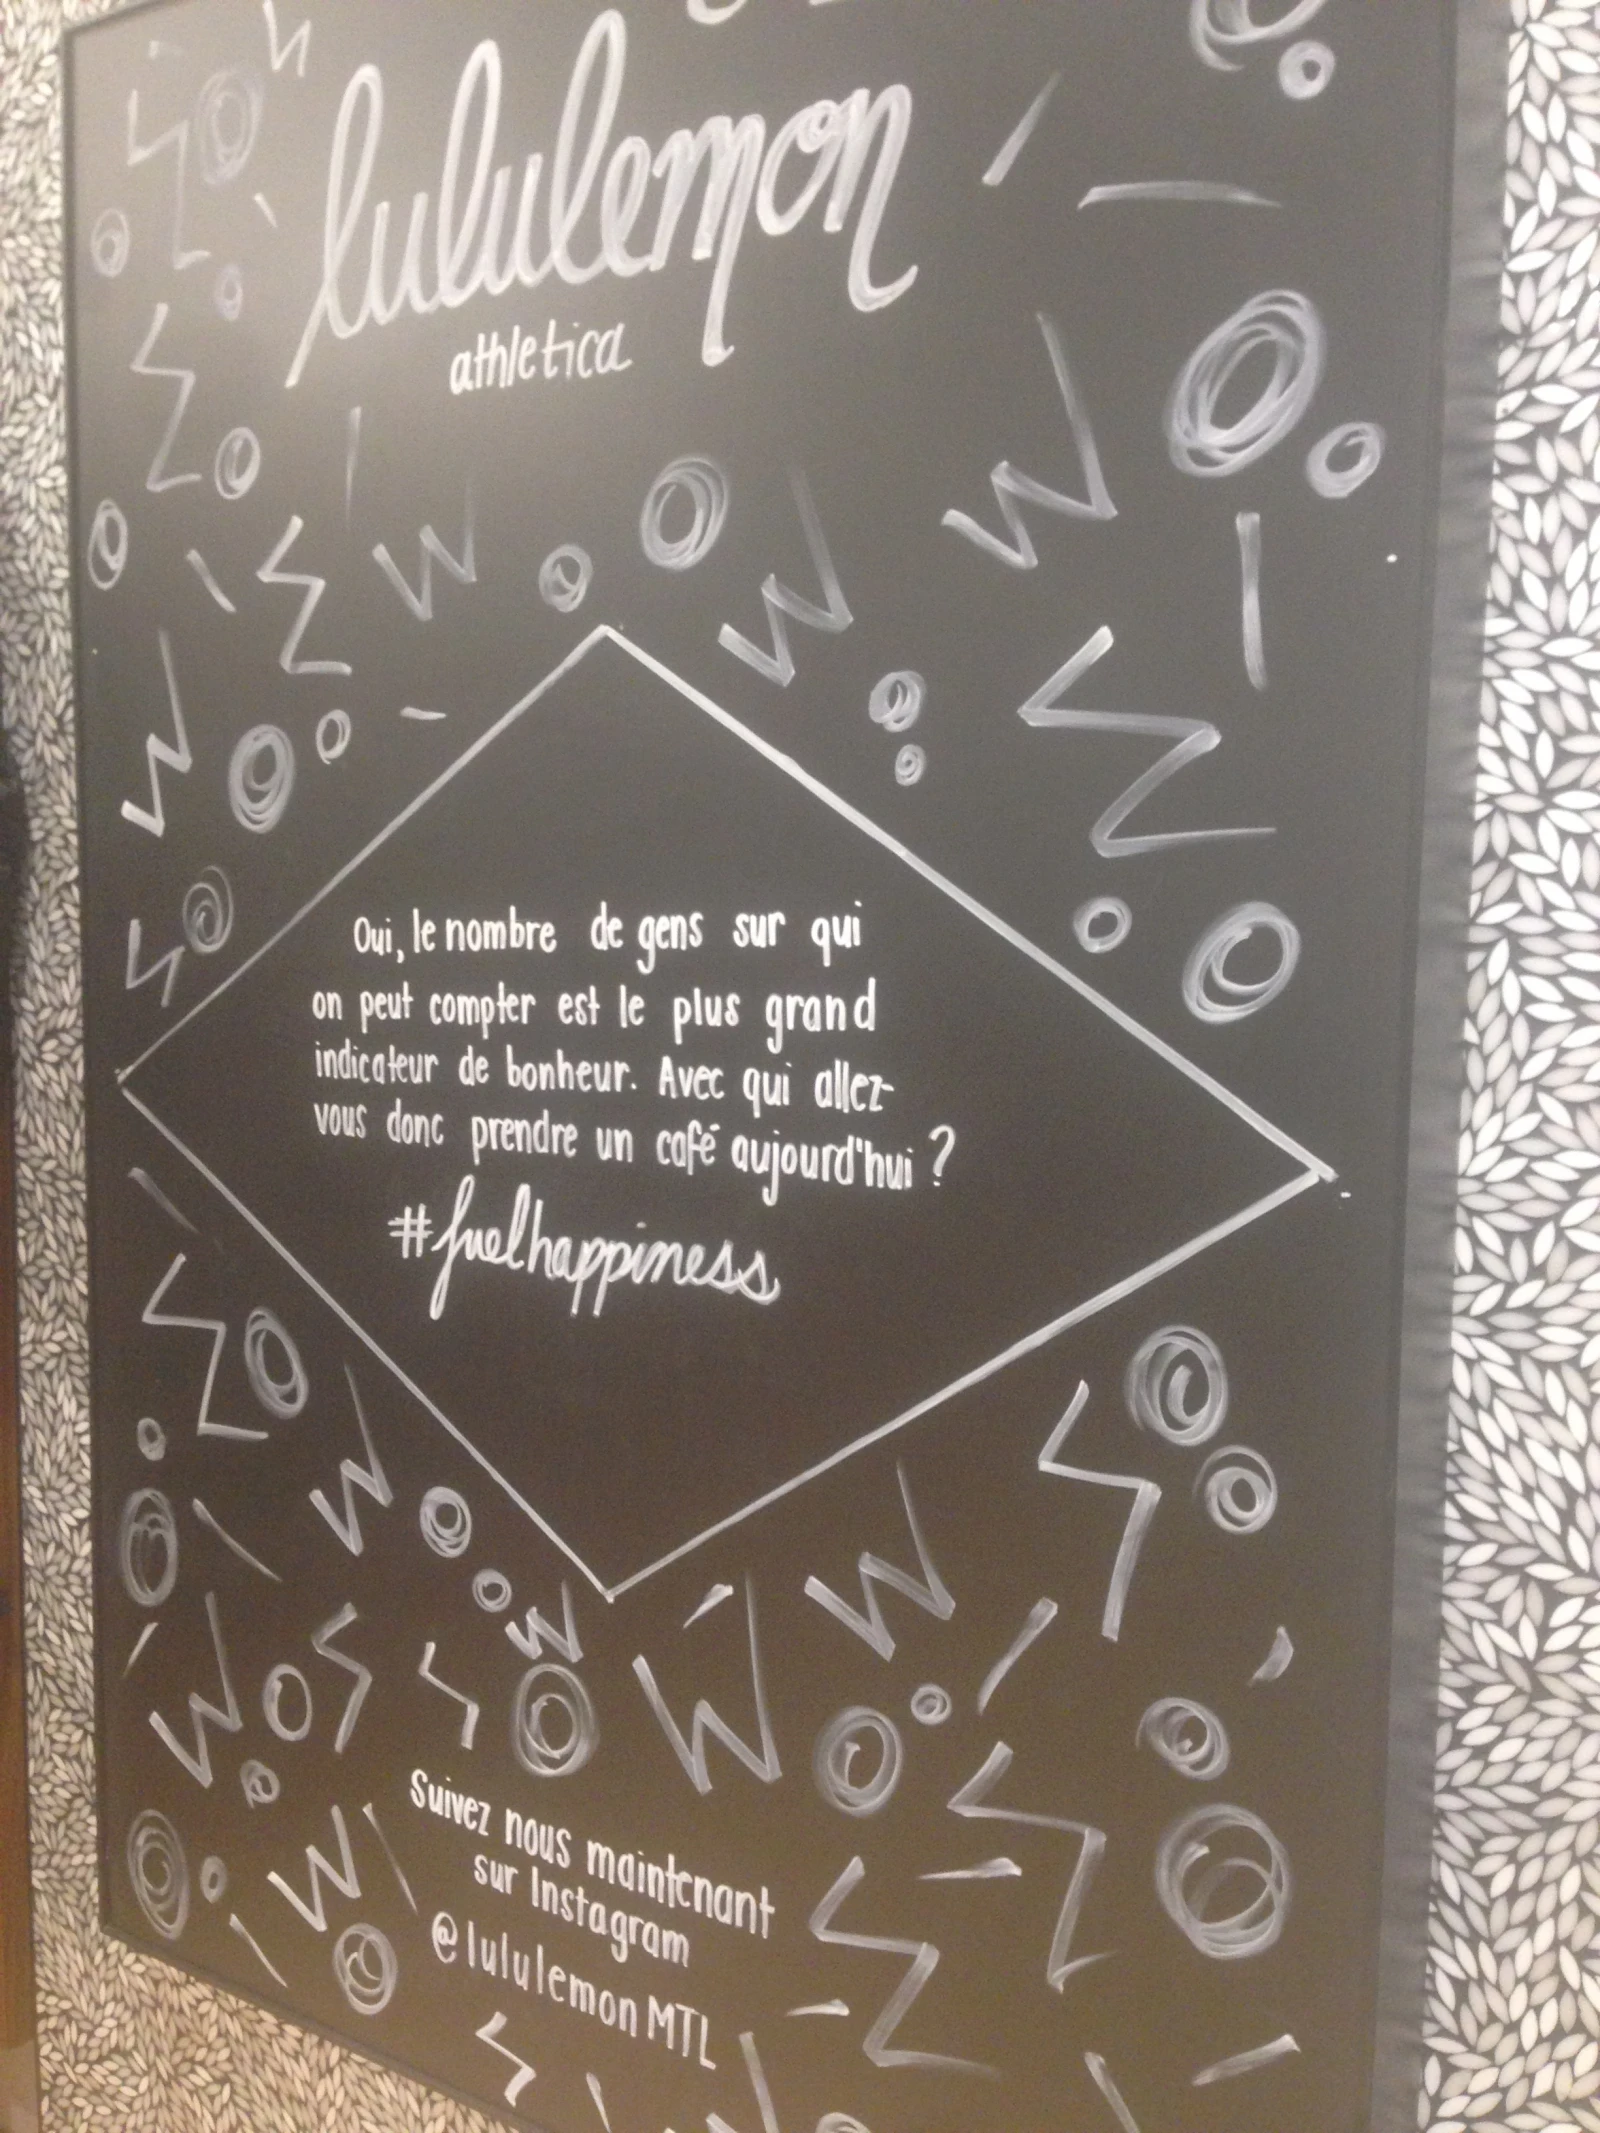 lululemon
athletica
Oui, le nombre de gens sur qui
on peut compter est le plus grand
indicateur de bonheur. Avec qui allez-
vous donc prendre un café aujourd'hui ?
#fuelhappiness
Suivez nous maintenant
sur Instagram
@lululemonMTL